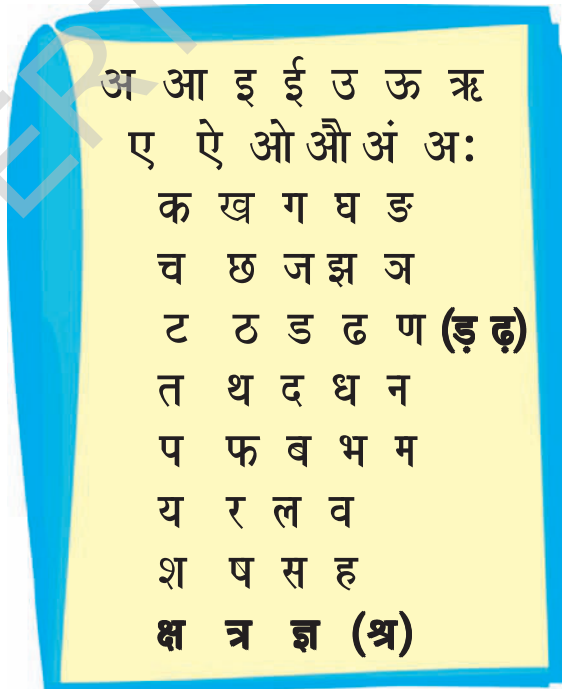 अ आ इ ई उ ऊ ऋ
ए ऐ ओ औ अं अः
क ख ग घ ङ
च छ ज झ ञ
ट ठ ड ढ ण (ड़ ढ़)
त थ द ध न
प फ ब भ म
य र ल व
श ष स ह
क्ष त्र ज्ञ (श्र)